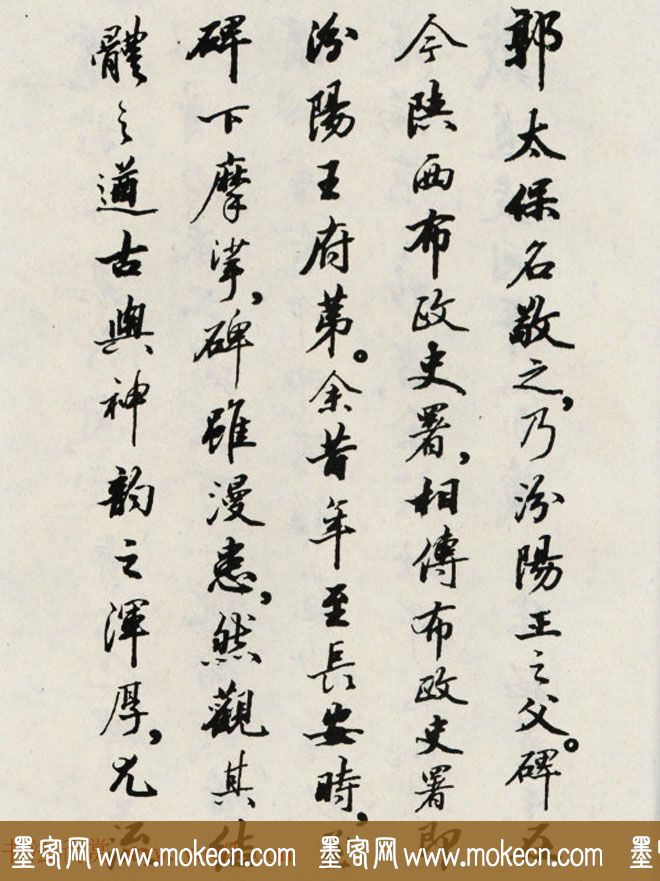 郭太保名敬之,乃汾陽王之父。碑在
今陕西布政史署,相傳布政史署即
汾陽王府第。余昔年至長安時,
碑下摩挲,碑雖漫患,然觀其結
體之遒古與神韵之渾厚,尤
墨客网 www.mokecn.com 墨客网 www.mokecn.com